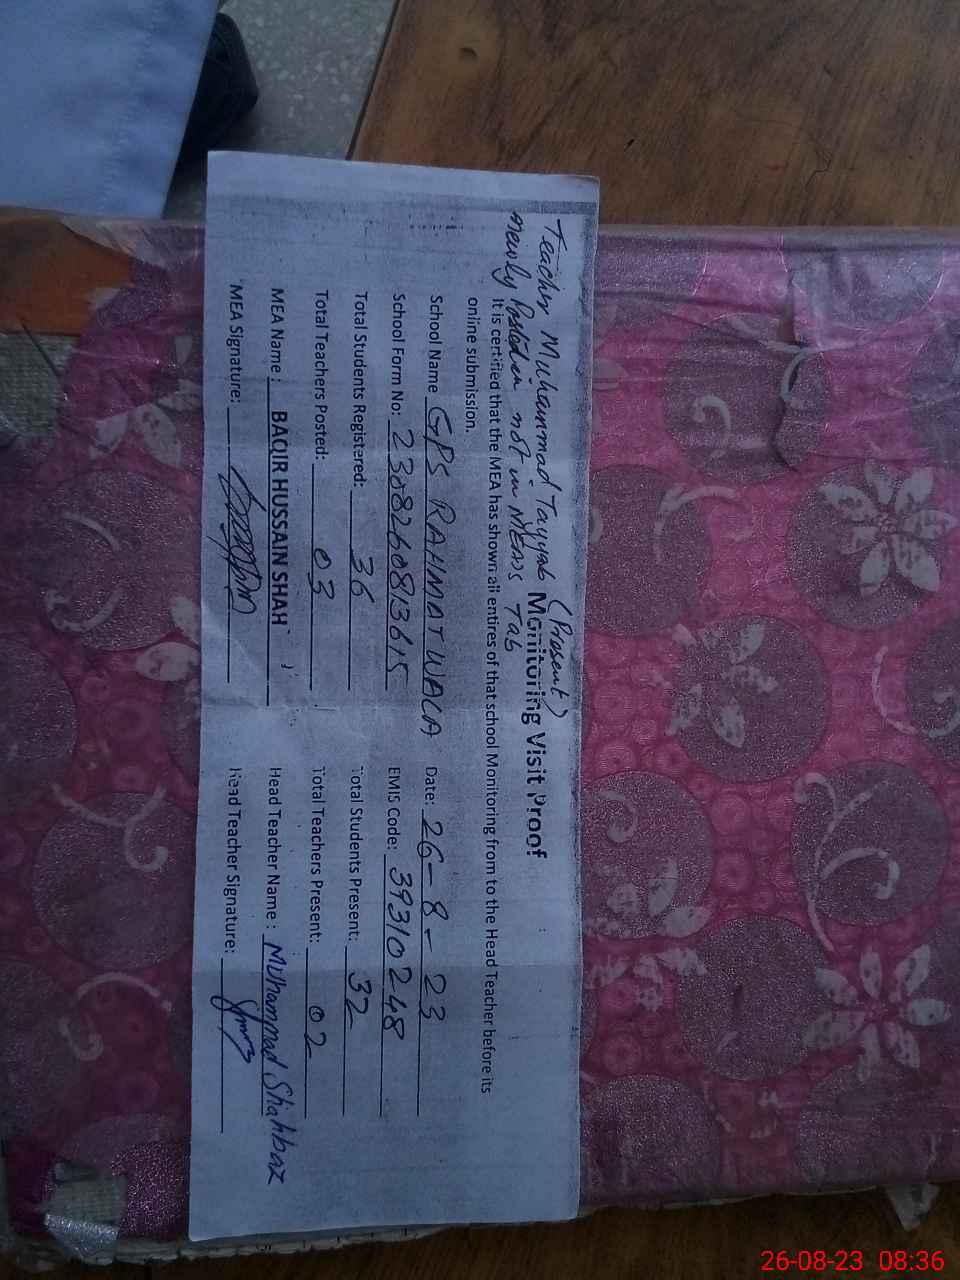 Teacher Muhammad Tayyab (Present)
newly Posted in not in MEAs Tab
Monitoring Visit Proof
It is certified that the MEA has shown all entires of that school Monitoring from to the Head Teacher before its
online submission.
School Name GPS RAHMAT WALA Date: 26-8-23
School Form No: 2308260813615 EMIS Code: 39310248
Total Students Registered: 36 Total Students Present: 32
Total Teachers Posted: 03 Total Teachers Present: 02
MEA Name: BAQIR HUSSAIN SHAH Head Teacher Name: Muhammad Shahbaz
MEA Signature: Head Teacher Signature:
26-08-23 08:36